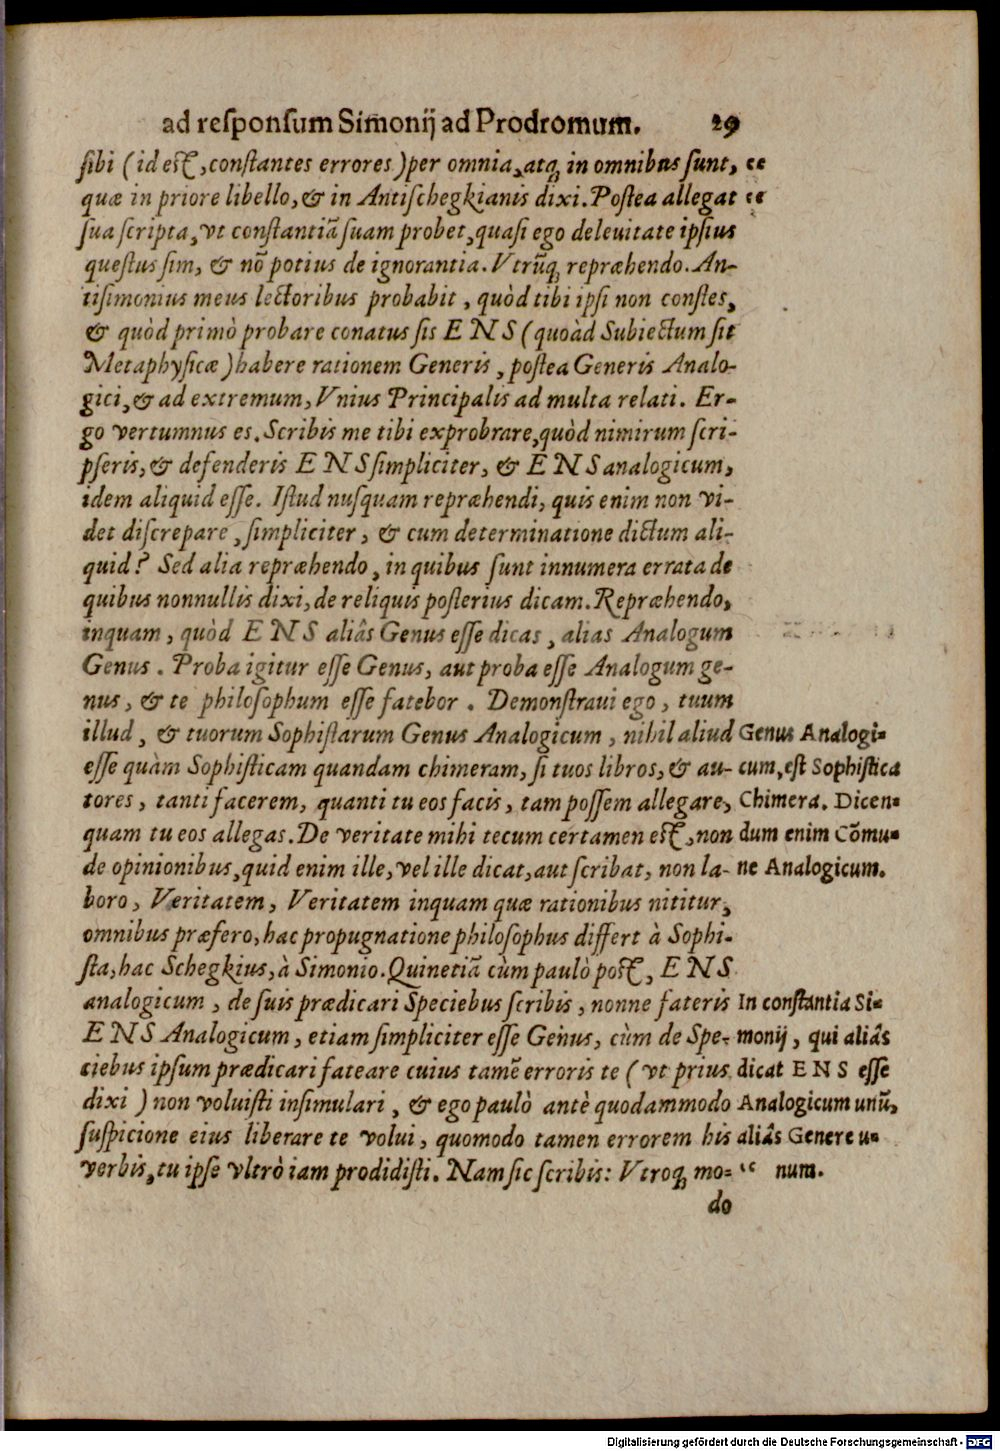 ad responsum Simonij ad Prodromum. 29
sibi (id est, constantes errores) per omnia, atq; in omnibus sunt, "
quæ in priore libello, & in Antischegkianis dixi. Postea allegat "
sua scripta, vt constantiā suam probet, quasi ego deleuitate ipsius
questus sim, & nō potius de ignorantia. Vtrūq; repræhendo. An-
tisimonius meus lectoribus probabit, quòd tibi ipsi non constes,
& quòd primò probare conatus sis ENS (quoàd Subiectum sit
Metaphysicæ) habere rationem Generis, postea Generis Analo-
gici, & ad extremum, Vnius Principalis ad multa relati. Er-
go vertumnus es. Scribis me tibi exprobrare, quòd nimirum scri-
pseris, & defenderis ENS simpliciter, & ENS analogicum,
idem aliquid esse. Istud nusquam repræhendi, quis enim non vi-
det discrepare, simpliciter, & cum determinatione dictum ali-
quid? Sed alia repræhendo, in quibus sunt innumera errata de
quibus nonnullis dixi, de reliquis posterius dicam. Repræhendo,
inquam, quòd ENS aliâs Genus esse dicas, alias Analogum
Genus. Proba igitur esse Genus, aut proba esse Analogum ge-
nus, & te philosophum esse fatebor. Demonstraui ego, tuum
illud, & tuorum Sophistarum Genus Analogicum, nihil aliud
esse quàm Sophisticam quandam chimeram, si tuos libros, & au-
tores, tanti facerem, quanti tu eos facis, tam possem allegare,
quam tu eos allegas. De veritate mihi tecum certamen est, non
de opinionibus, quid enim ille, vel ille dicat, aut scribat, non la-
boro, Veritatem, Veritatem inquam quæ rationibus nititur,
omnibus præfero, hac propugnatione philosophus differt à Sophi-
sta, hac Schegkius, à Simonio. Quinetiā cùm paulò post, ENS
analogicum, de suis prædicari Speciebus scribis, nonne fateris
ENS Analogicum, etiam simpliciter esse Genus, cùm de Spe-
ciebus ipsum prædicari fateare cuius tamē erroris te (vt prius
dixi) non voluisti insimulari, & ego paulò antè quodammodo
suspicione eius liberare te volui, quomodo tamen errorem his
verbis, tu ipse vltrò iam prodidisti. Nam sic scribis: Vtroq; mo- "
do
Genus Analogi-
cum, est Sophistica
Chimera. Dicen-
dum enim Cōmu-
ne Analogicum.
In constantia Si-
monij, qui aliâs
dicat ENS esse
Analogicum unū,
aliâs Genere u-
num.
Digitalisierung gefördert durch die Deutsche Forschungsgemeinschaft - DFG